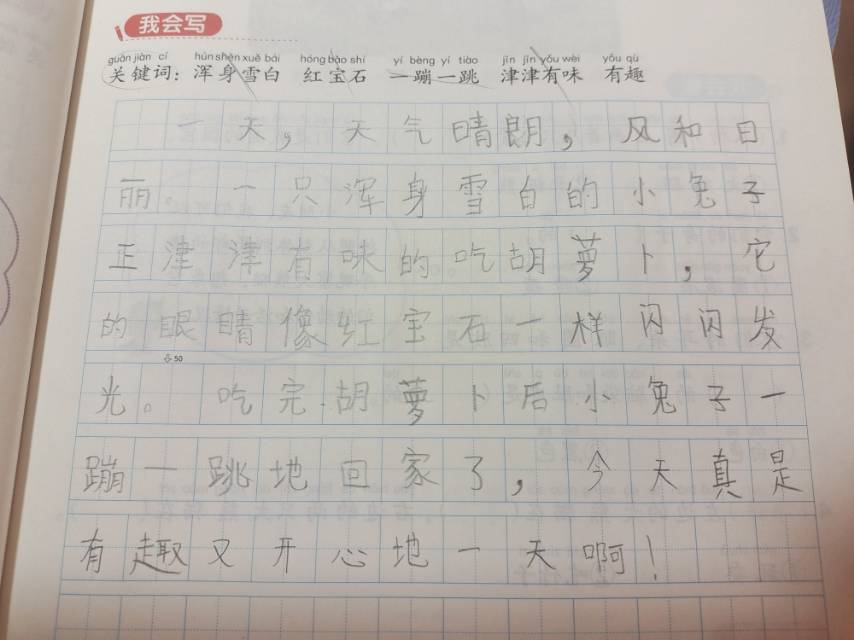 我会写
guān jiàn cí hún shēn xuě bái hóng bǎo shí yí bèng yí tiào jīn jīn yǒu wèi yǒu qù
关键词：浑身雪白 红宝石 一蹦一跳 津津有味 有趣
一天，天气晴朗，风和日
丽。一只浑身雪白的小兔子
正津津有味的吃胡萝卜，它
的眼睛像红宝石一样闪闪发
50
光。吃完胡萝卜后小兔子一
蹦一跳地回家了，今天真是
有趣又开心地一天啊！